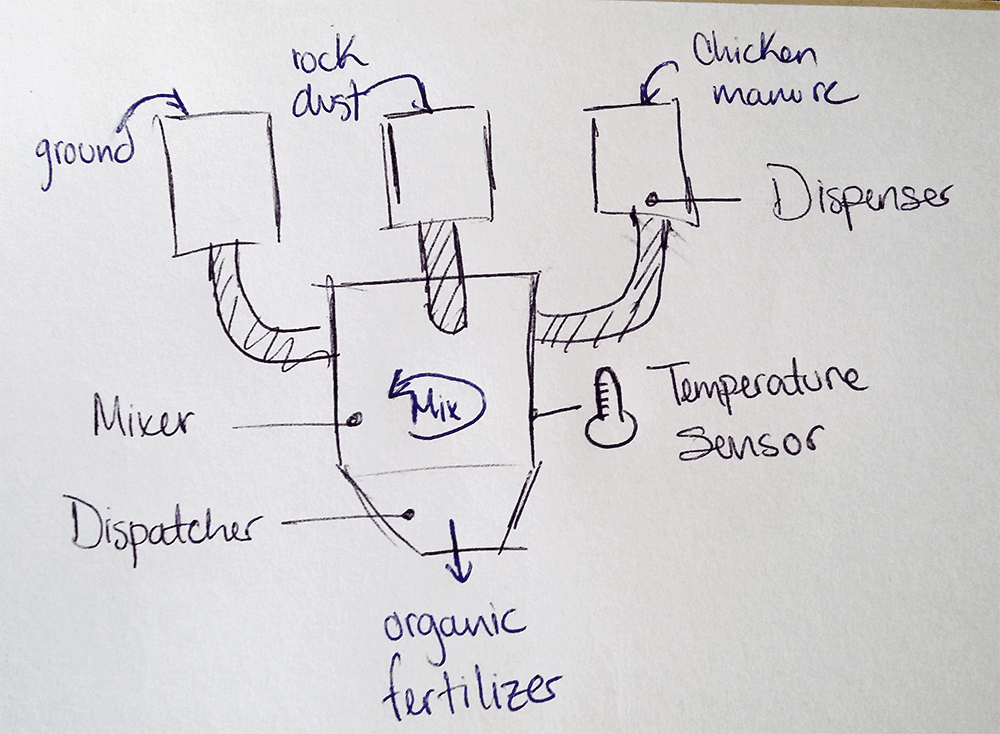 rock
dust
Chicken
manure
ground
Dispenser
Mix
Temperature
sensor
Mixer
Dispatcher
organic
fertilizer